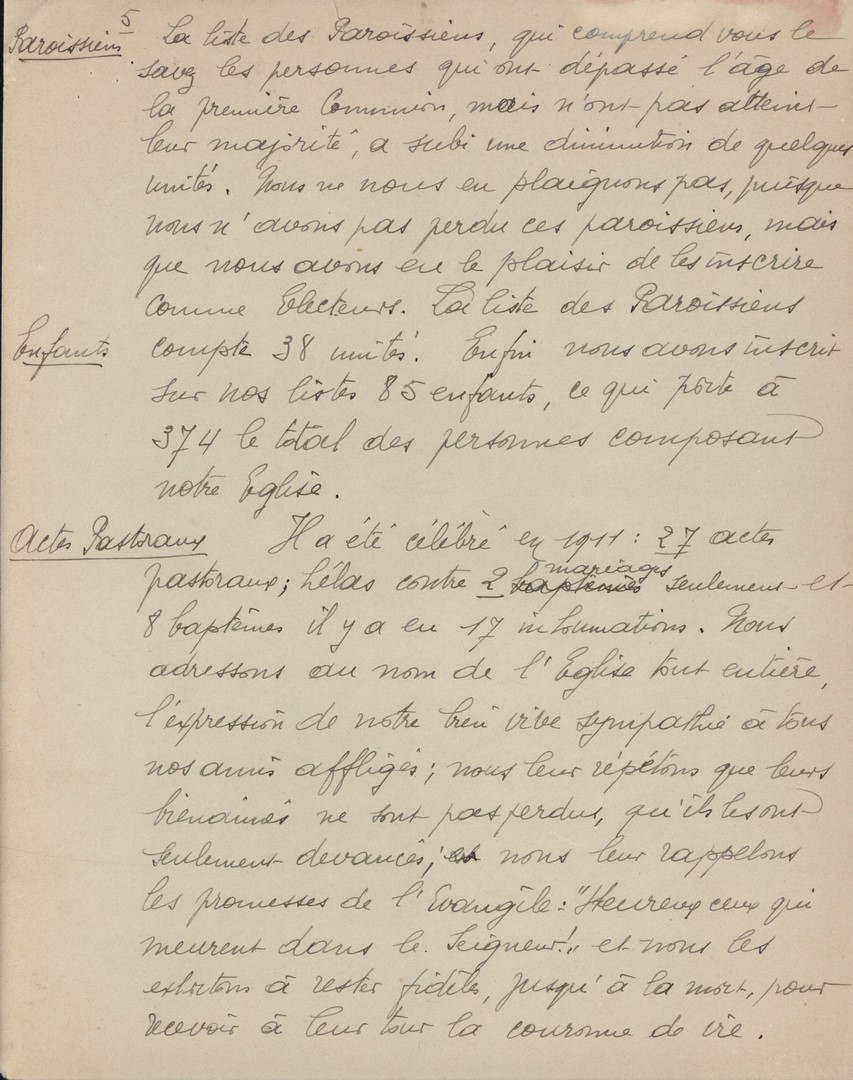 5
Paroissiens. La liste des Paroissiens, qui comprend vous le
savez les personnes qui ont dépassé l'âge de
la première Communion, mais n'ont pas atteint
leur majorité, a subi une diminution de quelques
unités. Nous ne nous en plaignons pas, puisque
nous n'avons pas perdu ces paroissiens, mais
que nous avons eu le plaisir de les inscrire
comme Electeurs. La liste des Paroissiens
Enfants compte 38 unités. Enfin nous avons inscrit
sur nos listes 85 enfants, ce qui porte à
374 le total des personnes composant
notre Eglise.
Actes Pastoraux Il a été célébré en 1911 : 27 actes
mariages
pastoraux; hélas contre 2 baptêmes seulement et
8 baptêmes il y a eu 17 inhumations. Nous
adressons au nom de l'Eglise tout entière,
l'expression de notre bien vive sympathie à tous
nos amis affligés; nous leur répétons que leurs
bienaimés ne sont pas perdus, qu'ils les ont
seulement devancés; et nous leur rappelons
les promesses de l'Evangile: "Heureux ceux qui
meurent dans le Seigneur!" et nous les
exhortons à rester fidèles, jusqu'à la mort, pour
recevoir à leur tour la couronne de vie.